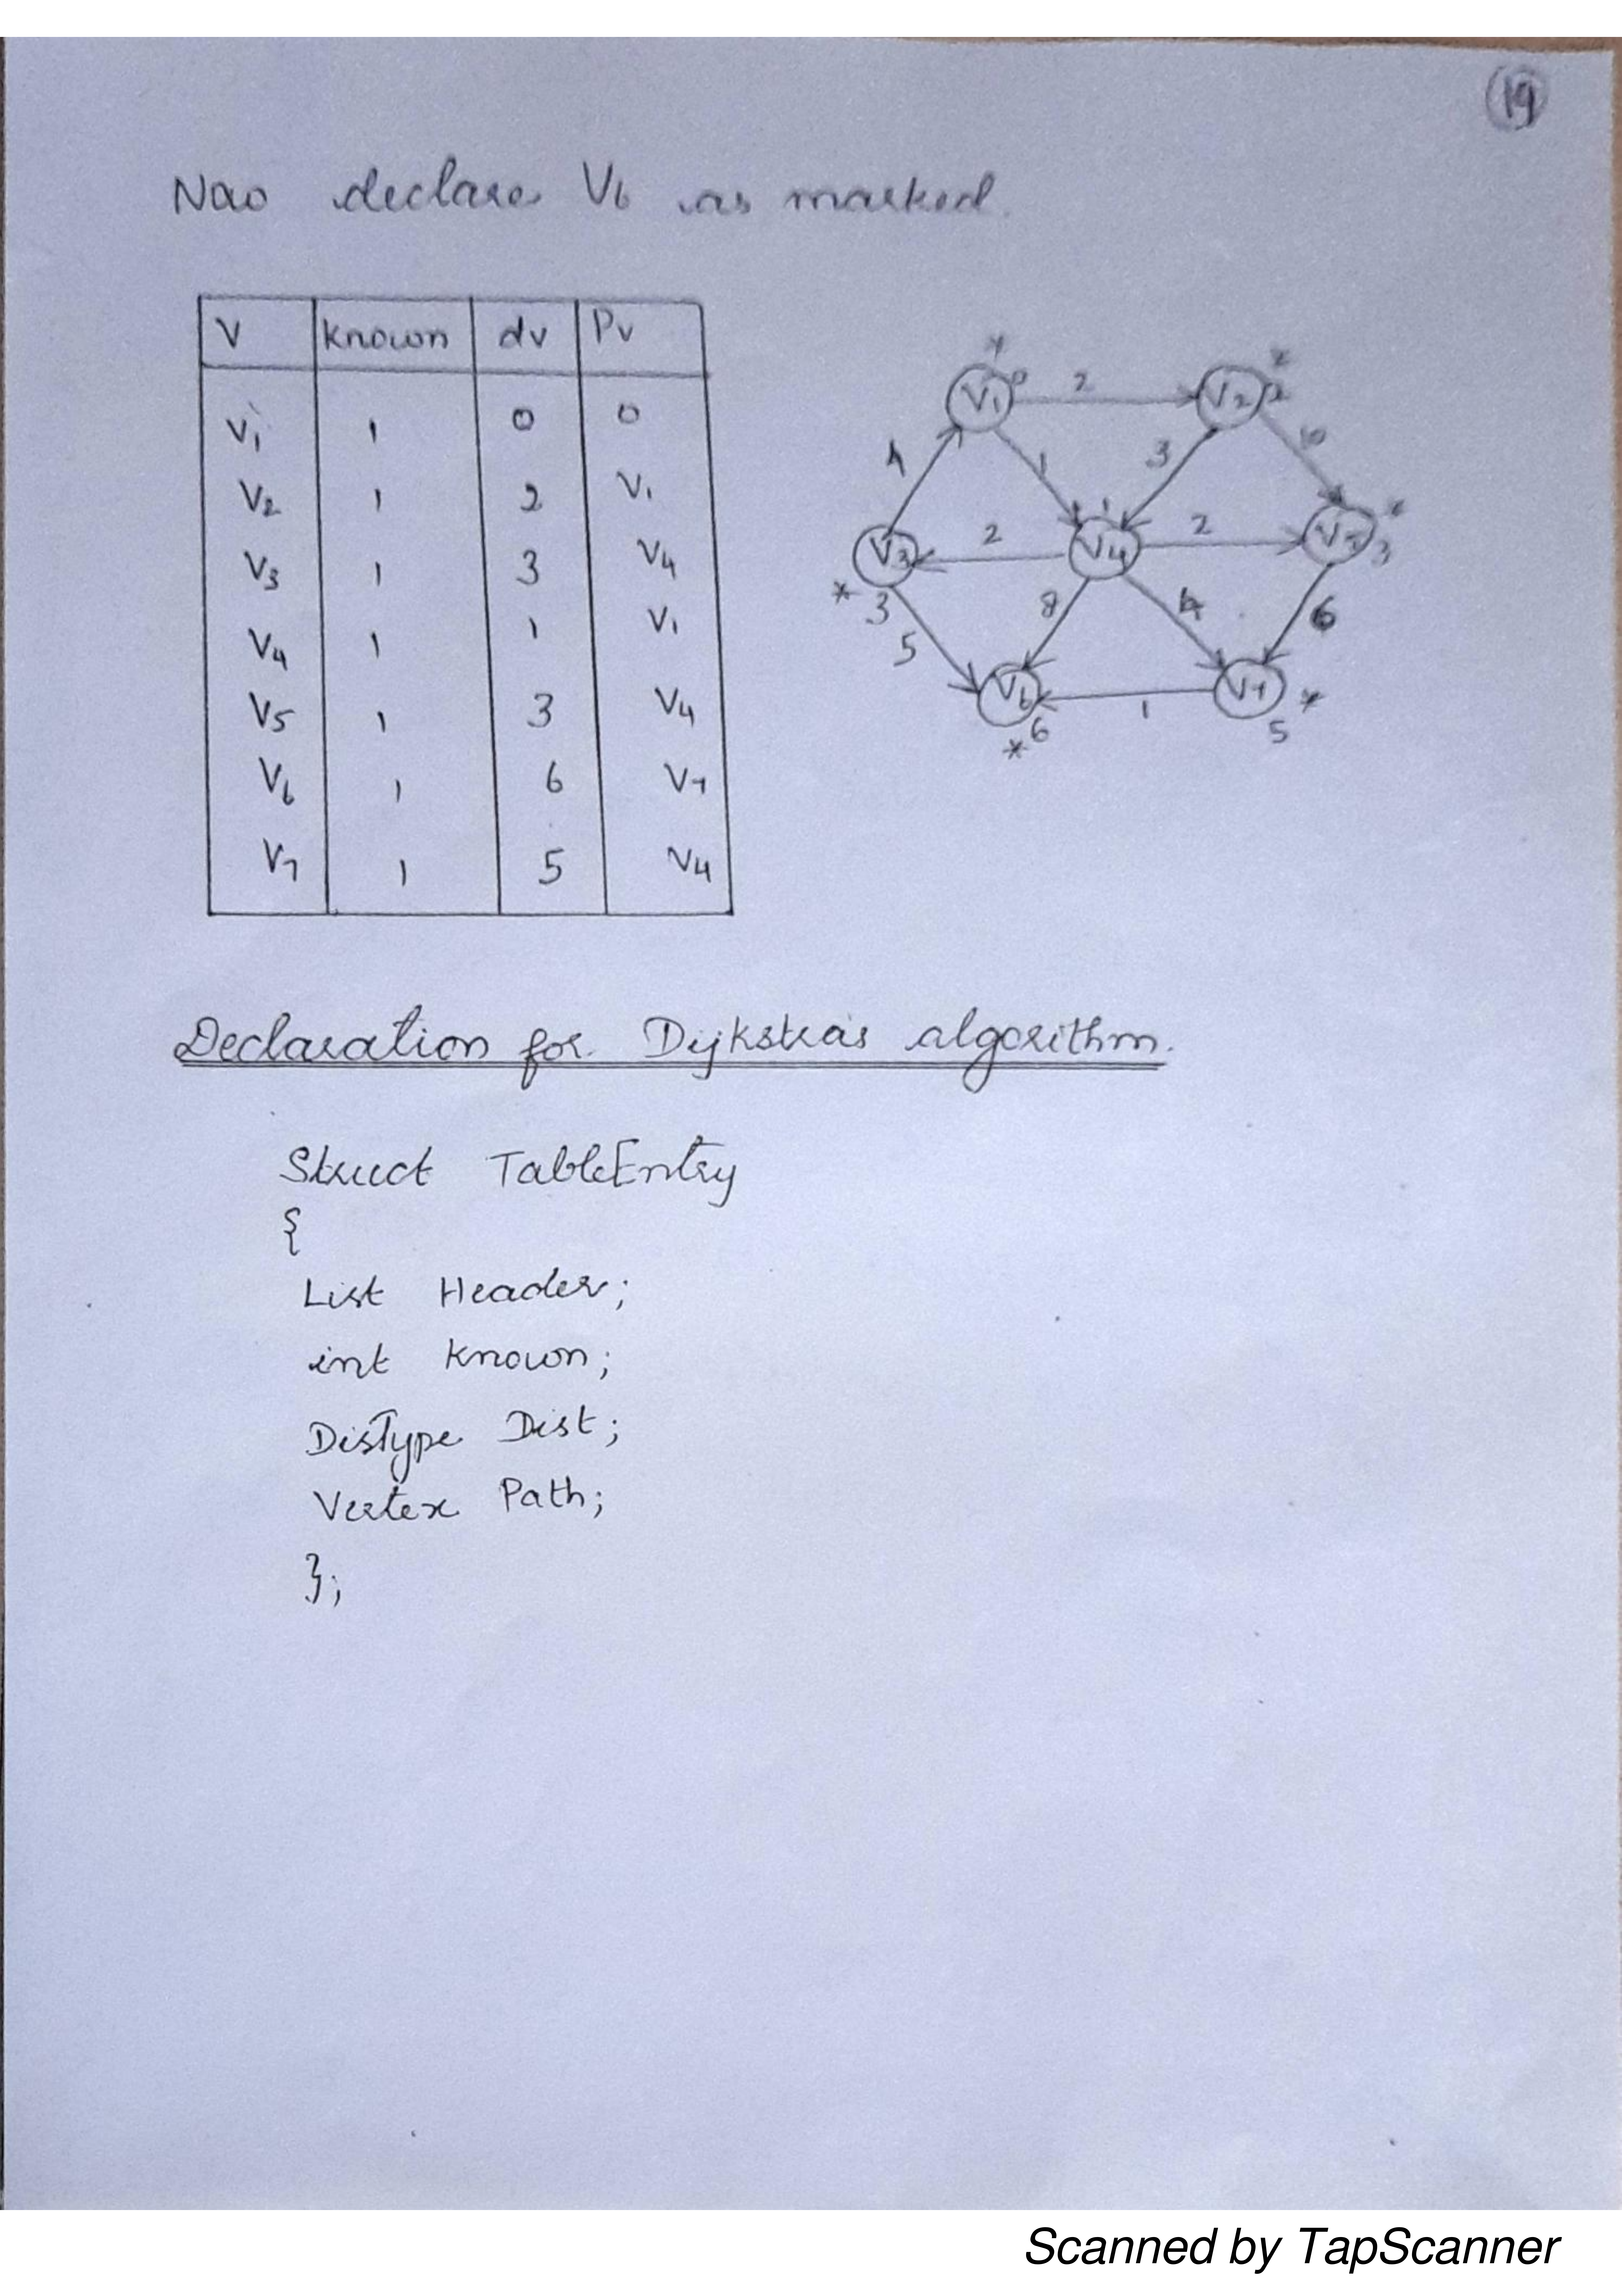 19
Nao declare V6 as marked.
V known dv Pv
V1 1 0 0
V2 1 2 V1
V3 1 3 V4
V4 1 1 V1
V5 1 3 V4
V6 1 6 V7
V7 1 5 V4
* *
V1 0 2 V2 2
4 1 3 10
V3 2 V4 1 2 V5 * 3
* 3 5 8 4 6
V6 1 V7 *
* 6 5
Declaration for Dijkstras algorithm.
Struct TableEntry
{
List Header;
int known;
DisType Dist;
Vertex Path;
};
Scanned by TapScanner